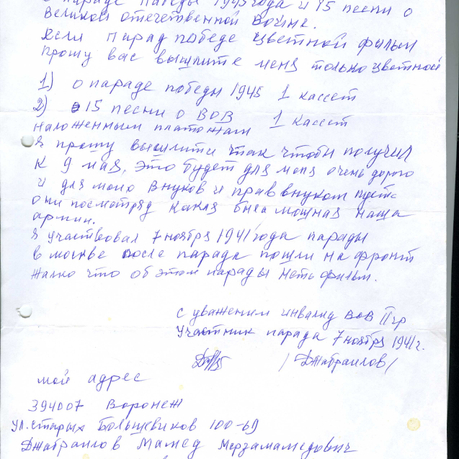 о параде победы 1945 года и 15 песни о
великой отечественной войне.
если парад победе цветной фильм
прошу вас вышлите меня только цветной
1) о параде победы 1945 1 кассет
2) о 15 песни о ВОВ 1 кассет
наложенным платожам
я прошу вышлити так чтобы получил
к 9 мая, это будет для меня очень дорого
и для моно внуков и правнуков пусть
они посмотряд какая была мощная наша
армии.
я участвовал 7 ноября 1941 года парады
в москве после парада пошли на фронт
жалко что об этом парады неть фильм.
с уважением инвалид ВОВ II гр
Участник парада 7 ноября 1941 г.
/Джабраилов/
мой адрес
394007 Воронеж
ул. старых большевиков 100-69
Джабраилов Мамед Мерзамамедович